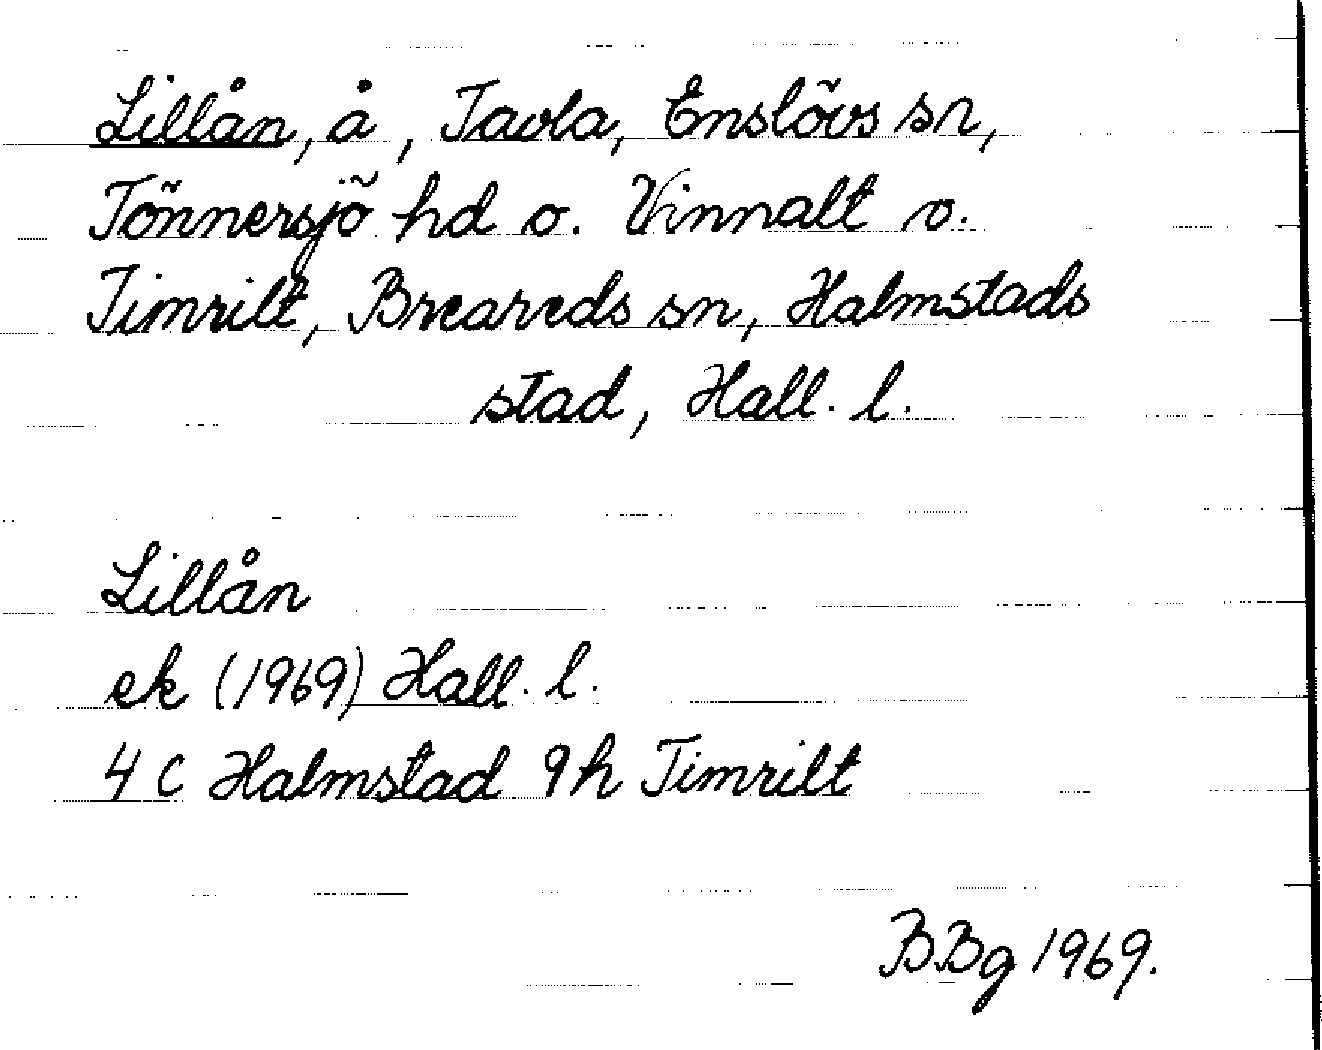 Lillån, å, Tavla, Enslövs sn,
Tönnersjö hd o. Vinnalt o.
Timrilt, Breareds sn, Halmstads
stad, Hall. l.
Lillån
ek (1969) Hall. l.
4 C Halmstad 9h Timrilt
BBg 1969.